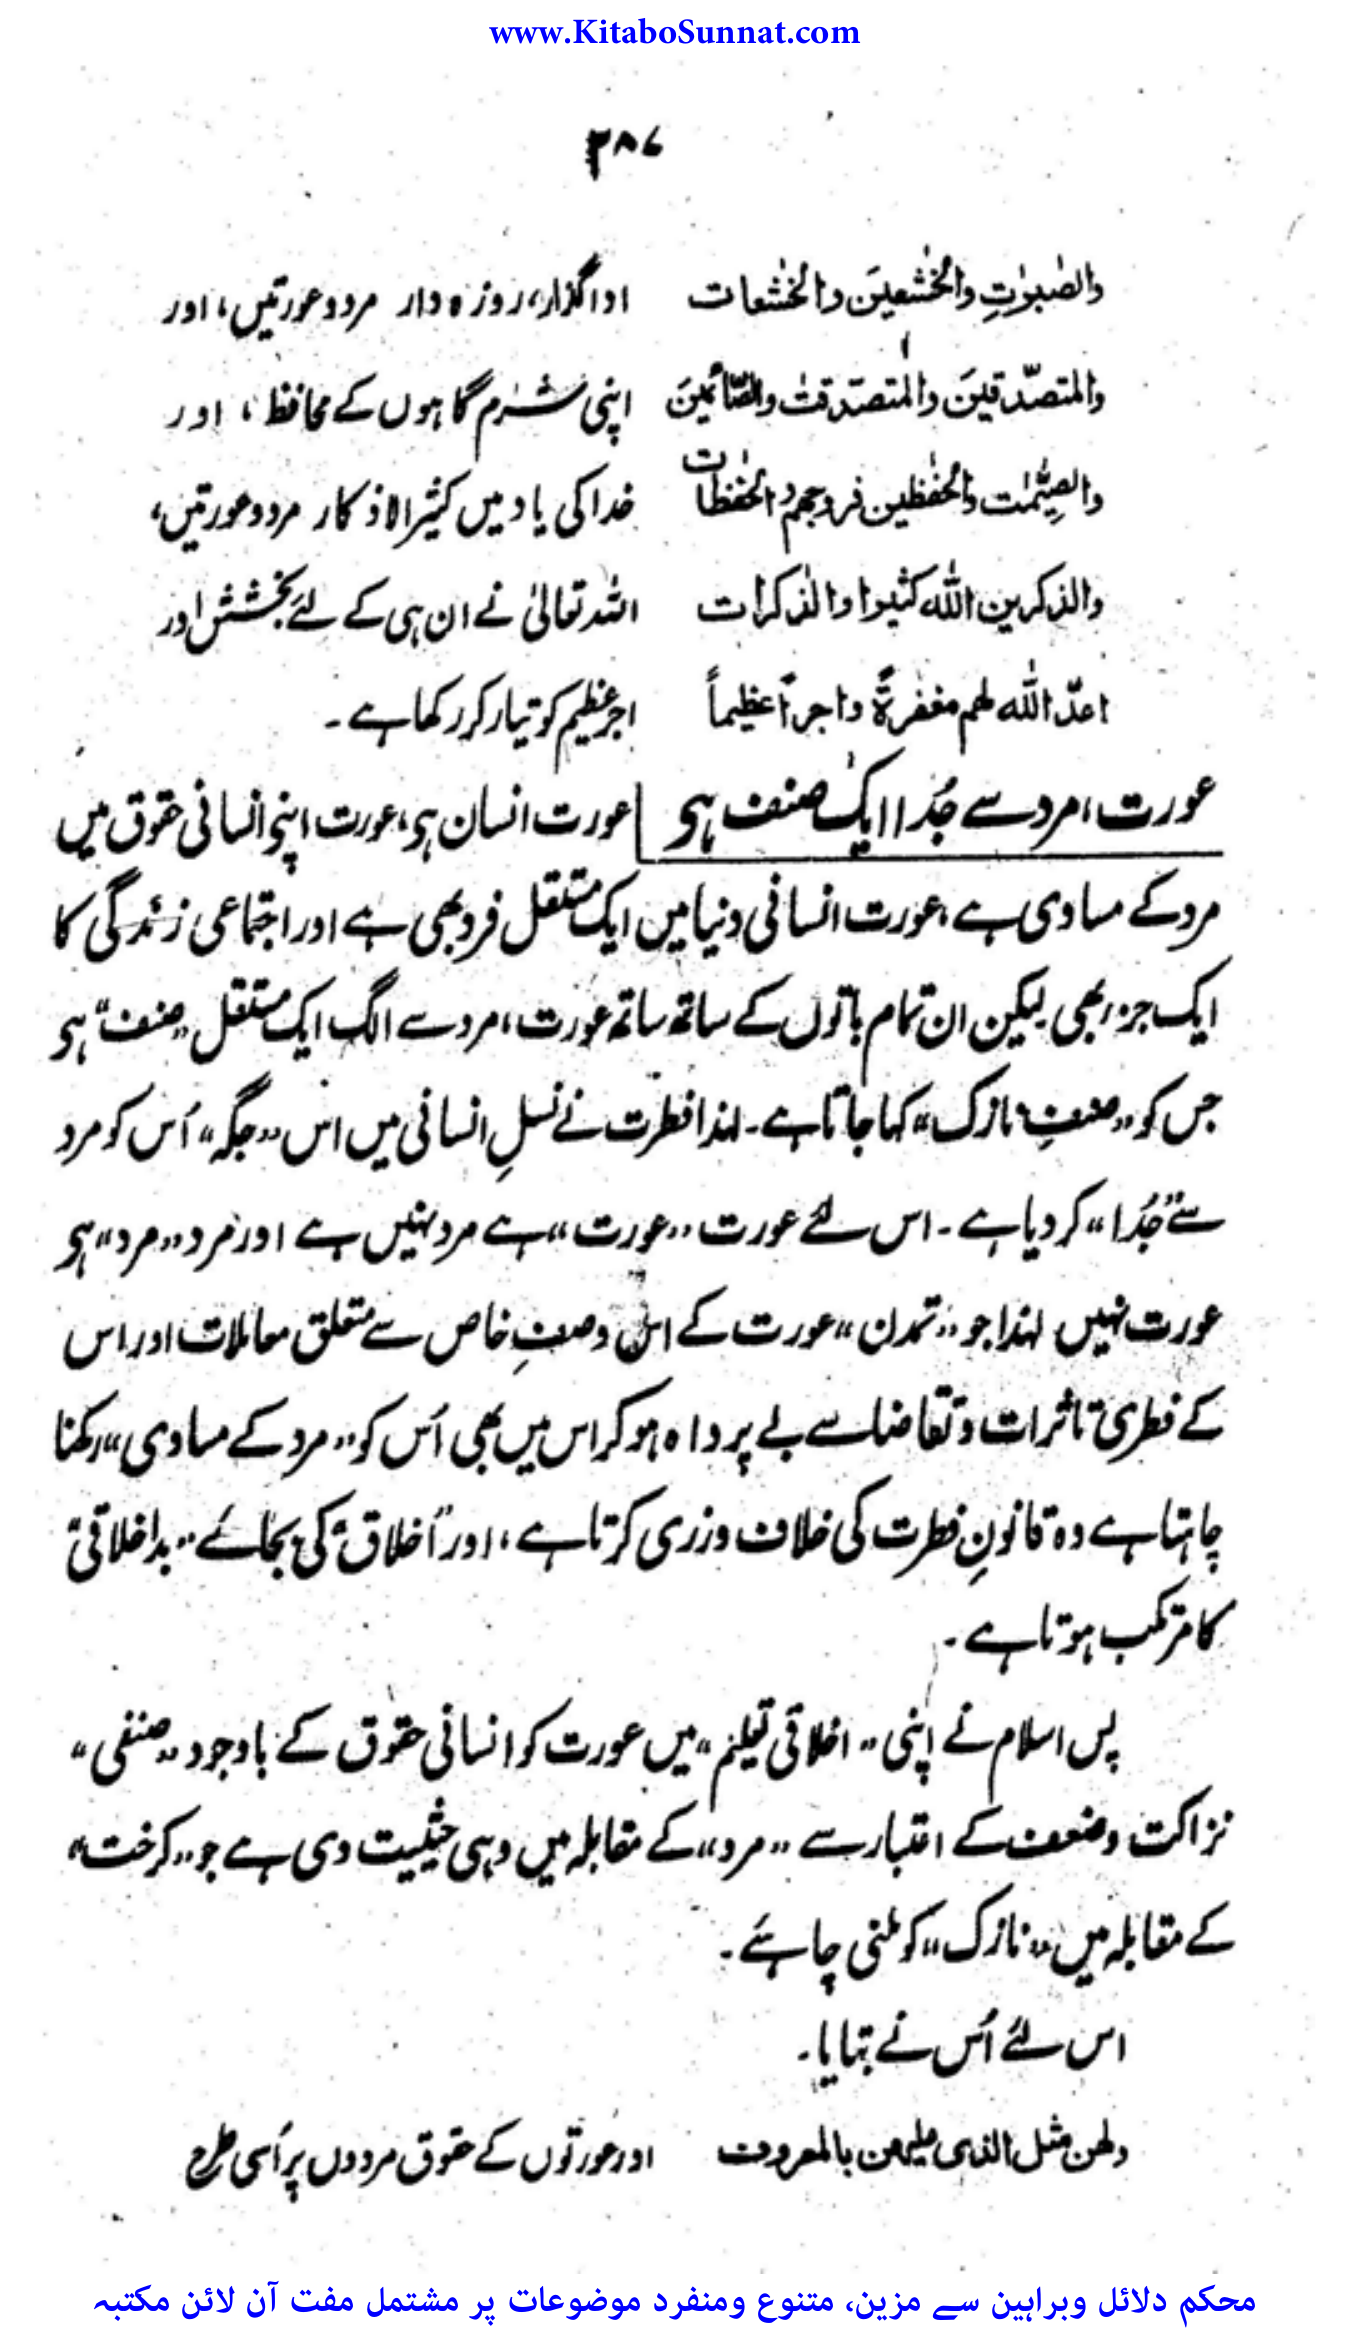 www.KitaboSunnat.com
۳۸۷
والصٰبرٰتِ والخٰشعینَ والخٰشعات اداگذار، روزہ دار مرد وعورتیں، اور
والمتصدّقینَ والمتصدّقٰت والصّائمینَ اپنی شرم گاہوں کے محافظ، اور
والصٰئمٰت والحٰفظین فروجہم والحٰفظات خدا کی یاد میں کثیر الاذکار مرد وعورتیں،
والذکرین اللّٰہ کثیرا والذکرات اللہ تعالیٰ نے ان ہی کے لئے بخشش اور
اعدّ اللّٰہ لہم مغفرۃً واجراً عظیماً اجر عظیم کو تیار کر رکھا ہے۔
عورت، مرد سے جُدا ایک صنف ہی عورت انسان ہی، عورت اپنے انسانی حقوق میں
مرد کے مساوی ہے، عورت انسانی دنیا میں ایک مستقل فرد بھی ہے اور اجتماعی زندگی کا
ایک جزر بھی لیکن ان تمام باتوں کے ساتھ ساتھ عورت، مرد سے الگ ایک مستقل ”صنف“ ہی
جس کو ”صنفِ نازک“ کہا جاتا ہے۔ لہذا فطرت نے نسلِ انسانی میں اس ”جگہ“ اُس کو مرد
سے ”جُدا“ کر دیا ہے۔ اس لئے عورت ”عورت“ ہے مرد نہیں ہے اور مرد ”مرد“ ہی
عورت نہیں لہذا جو ”تمدن“ عورت کے اس وصفِ خاص سے متعلق معاملات اور اس
کے فطری تاثرات و تقاضا سے بے پرواہ ہو کر اس میں بھی اُس کو ”مرد کے مساوی“ رکھنا
چاہتا ہے وہ قانونِ فطرت کی خلاف ورزی کرتا ہے، اور ”اخلاق“ کی بجائے ”بداخلاقی“
کا مرتکب ہوتا ہے۔
پس اسلام نے اپنی ”اخلاقی تعلیم“ میں عورت کو انسانی حقوق کے باوجود ”صنفی“
نزاکت و ضعف کے اعتبار سے ”مرد“ کے مقابلہ میں وہی حیثیت دی ہے جو ”کرخت“
کے مقابلہ میں ”نازک“ کو ملنی چاہئے۔
اس لئے اُس نے بتایا۔
ولہن مثل الذی علیہن بالمعروف اور عورتوں کے حقوق مردوں پر اُسی طرح
محکم دلائل وبراہین سے مزین، متنوع ومنفرد موضوعات پر مشتمل مفت آن لائن مکتبہ